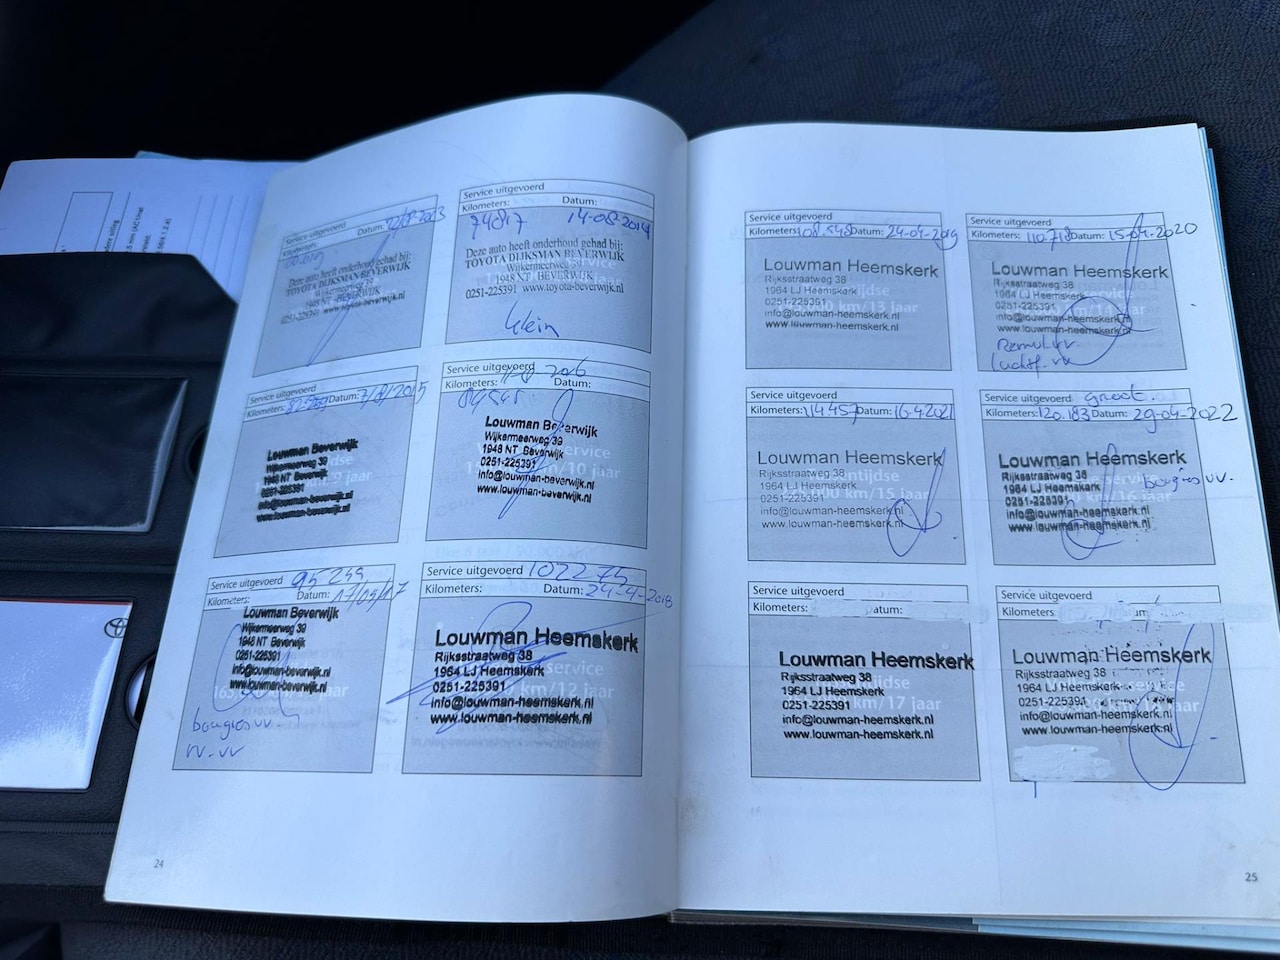 Service uitgevoerd
Kilometers: Datum:
Deze auto heeft onderhoud gehad bij:
TOYOTA DIJKSMAN BEVERWIJK
1948 NT BEVERWIJK
0251-225391 www.toyota-beverwijk.nl
Service uitgevoerd
Kilometers: Datum:
74817 14-08-2014
Deze auto heeft onderhoud gehad bij:
TOYOTA DIJKSMAN BEVERWIJK
Wijkermeerweg 39
1948 NT BEVERWIJK
0251-225391 www.toyota-beverwijk.nl
klein
Service uitgevoerd
Kilometers: Datum: 7/8/2015
Louwman Beverwijk
Wijkermeerweg 39
1948 NT Beverwijk
0251-225391
info@louwman-beverwijk.nl
www.louwman-beverwijk.nl
Service uitgevoerd
Kilometers: Datum:
Louwman Beverwijk
Wijkermeerweg 39
1948 NT Beverwijk
0251-225391
info@louwman-beverwijk.nl
www.louwman-beverwijk.nl
10 jaar
Service uitgevoerd 95249
Kilometers: Datum: 17/05/17
Louwman Beverwijk
Wijkermeerweg 39
1948 NT Beverwijk
0251-225391
info@louwman-beverwijk.nl
www.louwman-beverwijk.nl
bougies vv.
Service uitgevoerd 102275
Kilometers: Datum: 24-4-2018
Louwman Heemskerk
Rijksstraatweg 38
1964 LJ Heemskerk
0251-225391
info@louwman-heemskerk.nl
www.louwman-heemskerk.nl
km/12 jaar
24
Service uitgevoerd
Kilometers: 108.548 Datum: 24-04-2019
Louwman Heemskerk
Rijksstraatweg 38
1964 LJ Heemskerk
0251-225391
info@louwman-heemskerk.nl
www.louwman-heemskerk.nl
km/13 jaar
Service uitgevoerd
Kilometers: 110.718 Datum: 15-04-2020
Louwman Heemskerk
Rijksstraatweg 38
1964 LJ Heemskerk
0251-225391
info@louwman-heemskerk.nl
www.louwman-heemskerk.nl
Service uitgevoerd
Kilometers: 114.457 Datum: 16-4-2021
Louwman Heemskerk
Rijksstraatweg 38
1964 LJ Heemskerk
0251-225391
info@louwman-heemskerk.nl
www.louwman-heemskerk.nl
km/15 jaar
Service uitgevoerd groot.
Kilometers: 120.183 Datum: 29-04-2022
Louwman Heemskerk
Rijksstraatweg 38
1964 LJ Heemskerk
0251-225391
info@louwman-heemskerk.nl
www.louwman-heemskerk.nl
bougies vv.
km/16 jaar
Service uitgevoerd
Kilometers: Datum:
Louwman Heemskerk
Rijksstraatweg 38
1964 LJ Heemskerk
0251-225391
info@louwman-heemskerk.nl
www.louwman-heemskerk.nl
km/17 jaar
Service uitgevoerd
Kilometers:
Louwman Heemskerk
Rijksstraatweg 38
1964 LJ Heemskerk
0251-225391
info@louwman-heemskerk.nl
www.louwman-heemskerk.nl
25